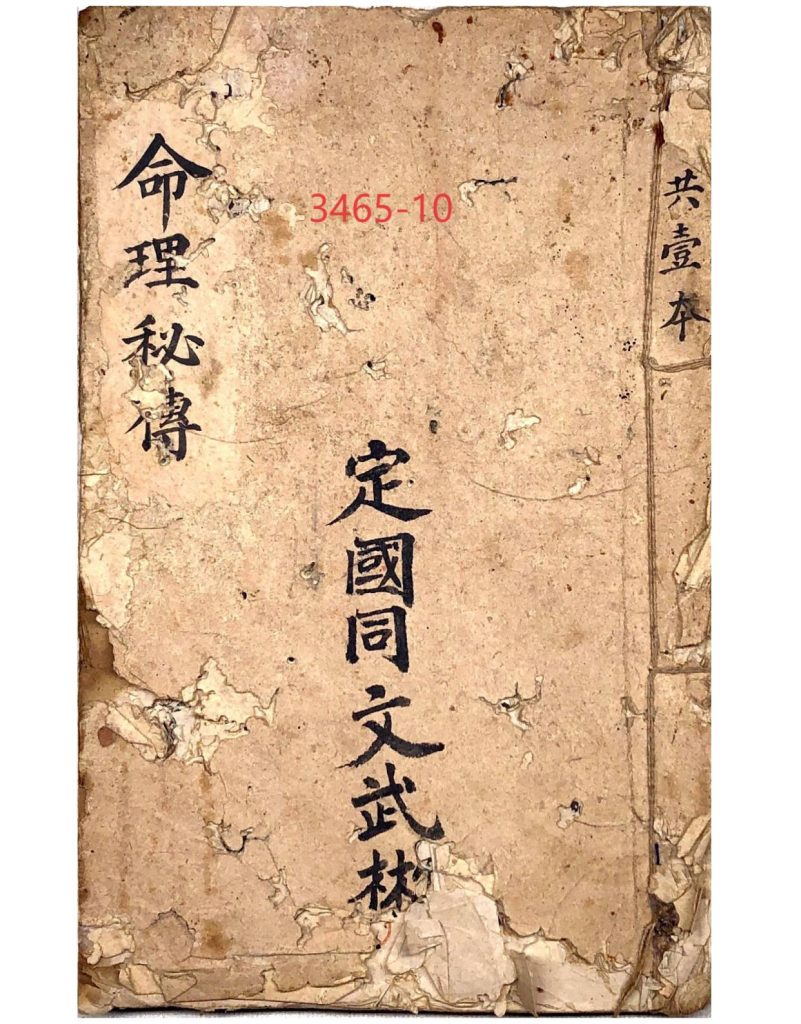 共壹本
3465-10
定國同文武彬
命理秘傳